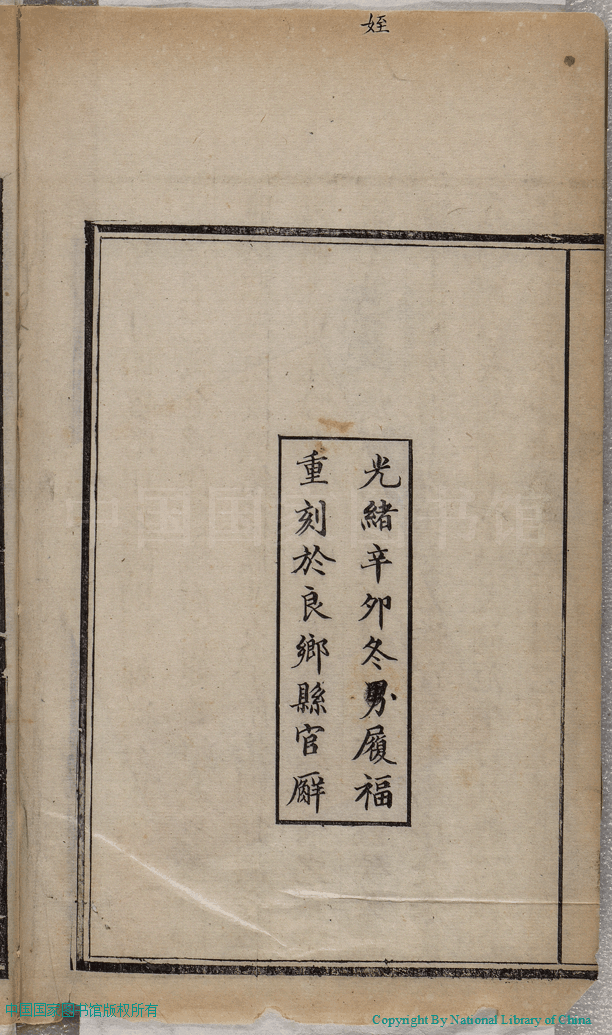 姪
光緒辛卯冬男履福
重刻於良鄉縣官廨
中国国家图书馆版权所有
Copyright By National Library of China